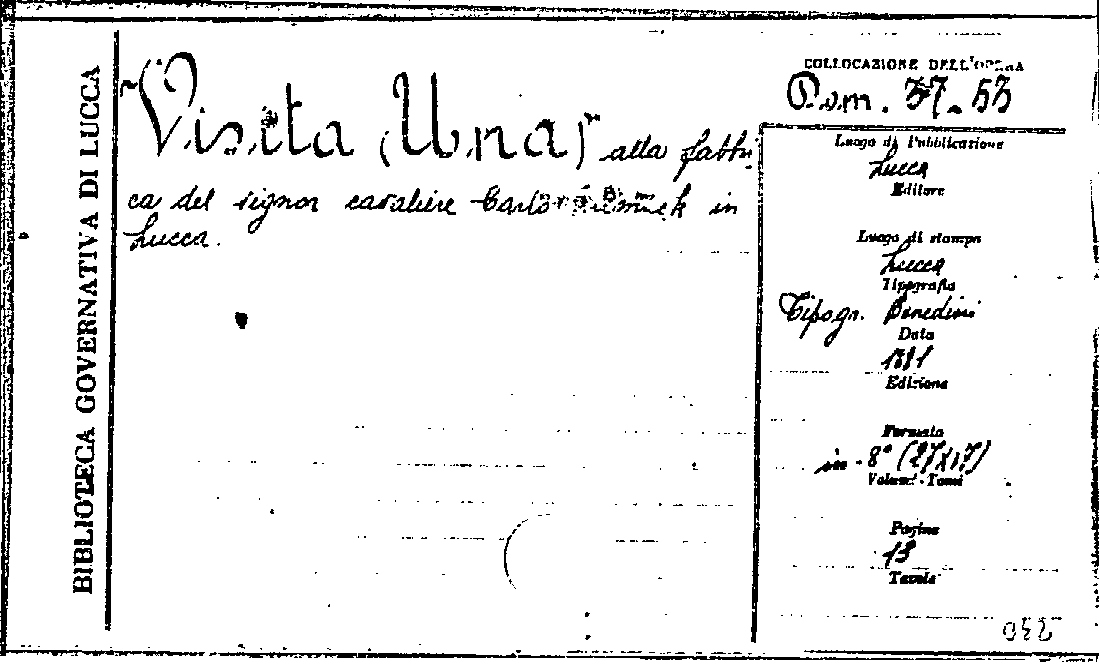 BIBLIOTECA GOVERNATIVA DI LUCCA
"Visita (Una)" alla fabbri
ca del signor cavaliere Carlo in
Lucca.
COLLOCAZIONE DELL'OPERA
Dom. 37-53
Luogo di Pubblicazione
Lucca
Editore
Luogo di stampa
Lucca
Tipografia
Tipogr. Benedini
Data
Edizione
Formato
in-8° (27x17)
Volumi-Tomi
Pagine
13
Tavole